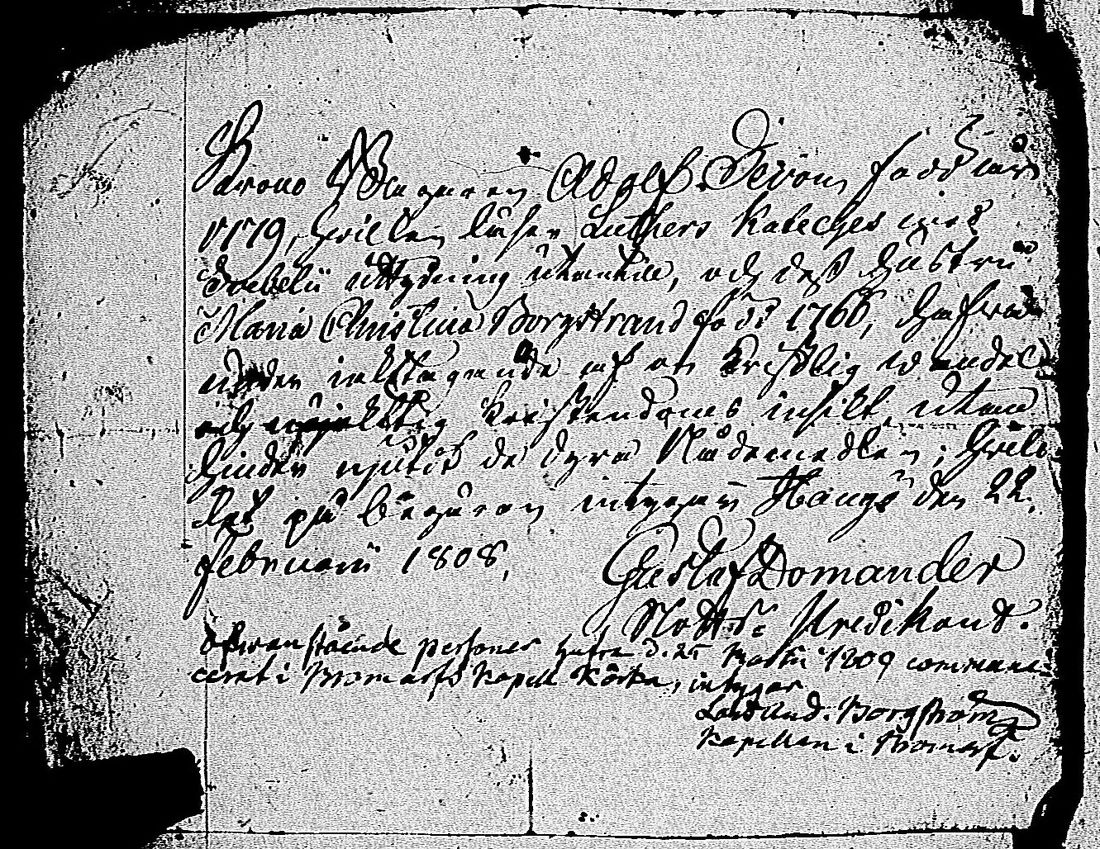 Krono Bagaren Adolf Sevon, född år
1779, hvilken läser Luthers Kateches med
Svebelii uttydning utantill, och dess Hustru
Maria Christina Borgstrand född 1766, hafva
under iakttagande af en Kristlig wandel
och Kristendoms insikt, utan
hinder njutit de dyra Nådemedlen; hvil-
ket på begäran intygar Hangö den 22.
Februarii 1808,
Gustaf Domander
Slotts Predikant.
Ofwanstående personer hafva d. 25 Martii 1809 communi-
cerat i Bromarfs Kapell Körka, intygar
And. Borgström
Kapellan i Bromarf.